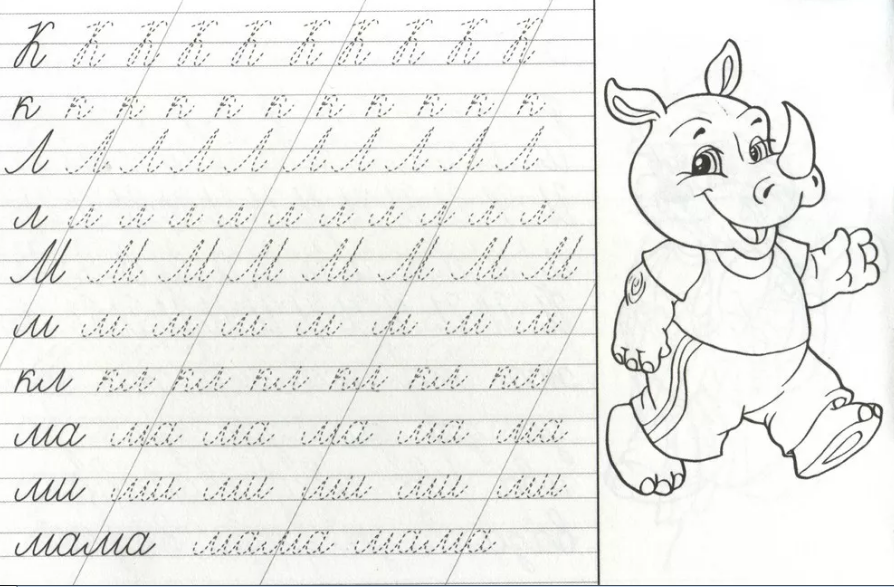 К К К К К К К К К К
к к к к к к к к к к к
Л Л Л Л Л Л Л Л Л Л
л л л л л л л л л л л
М М М М М М М М
м м м м м м м м
кл кл кл кл кл кл кл
ма ма ма ма ма ма
ми ми ми ми ми ми
мама мама мама